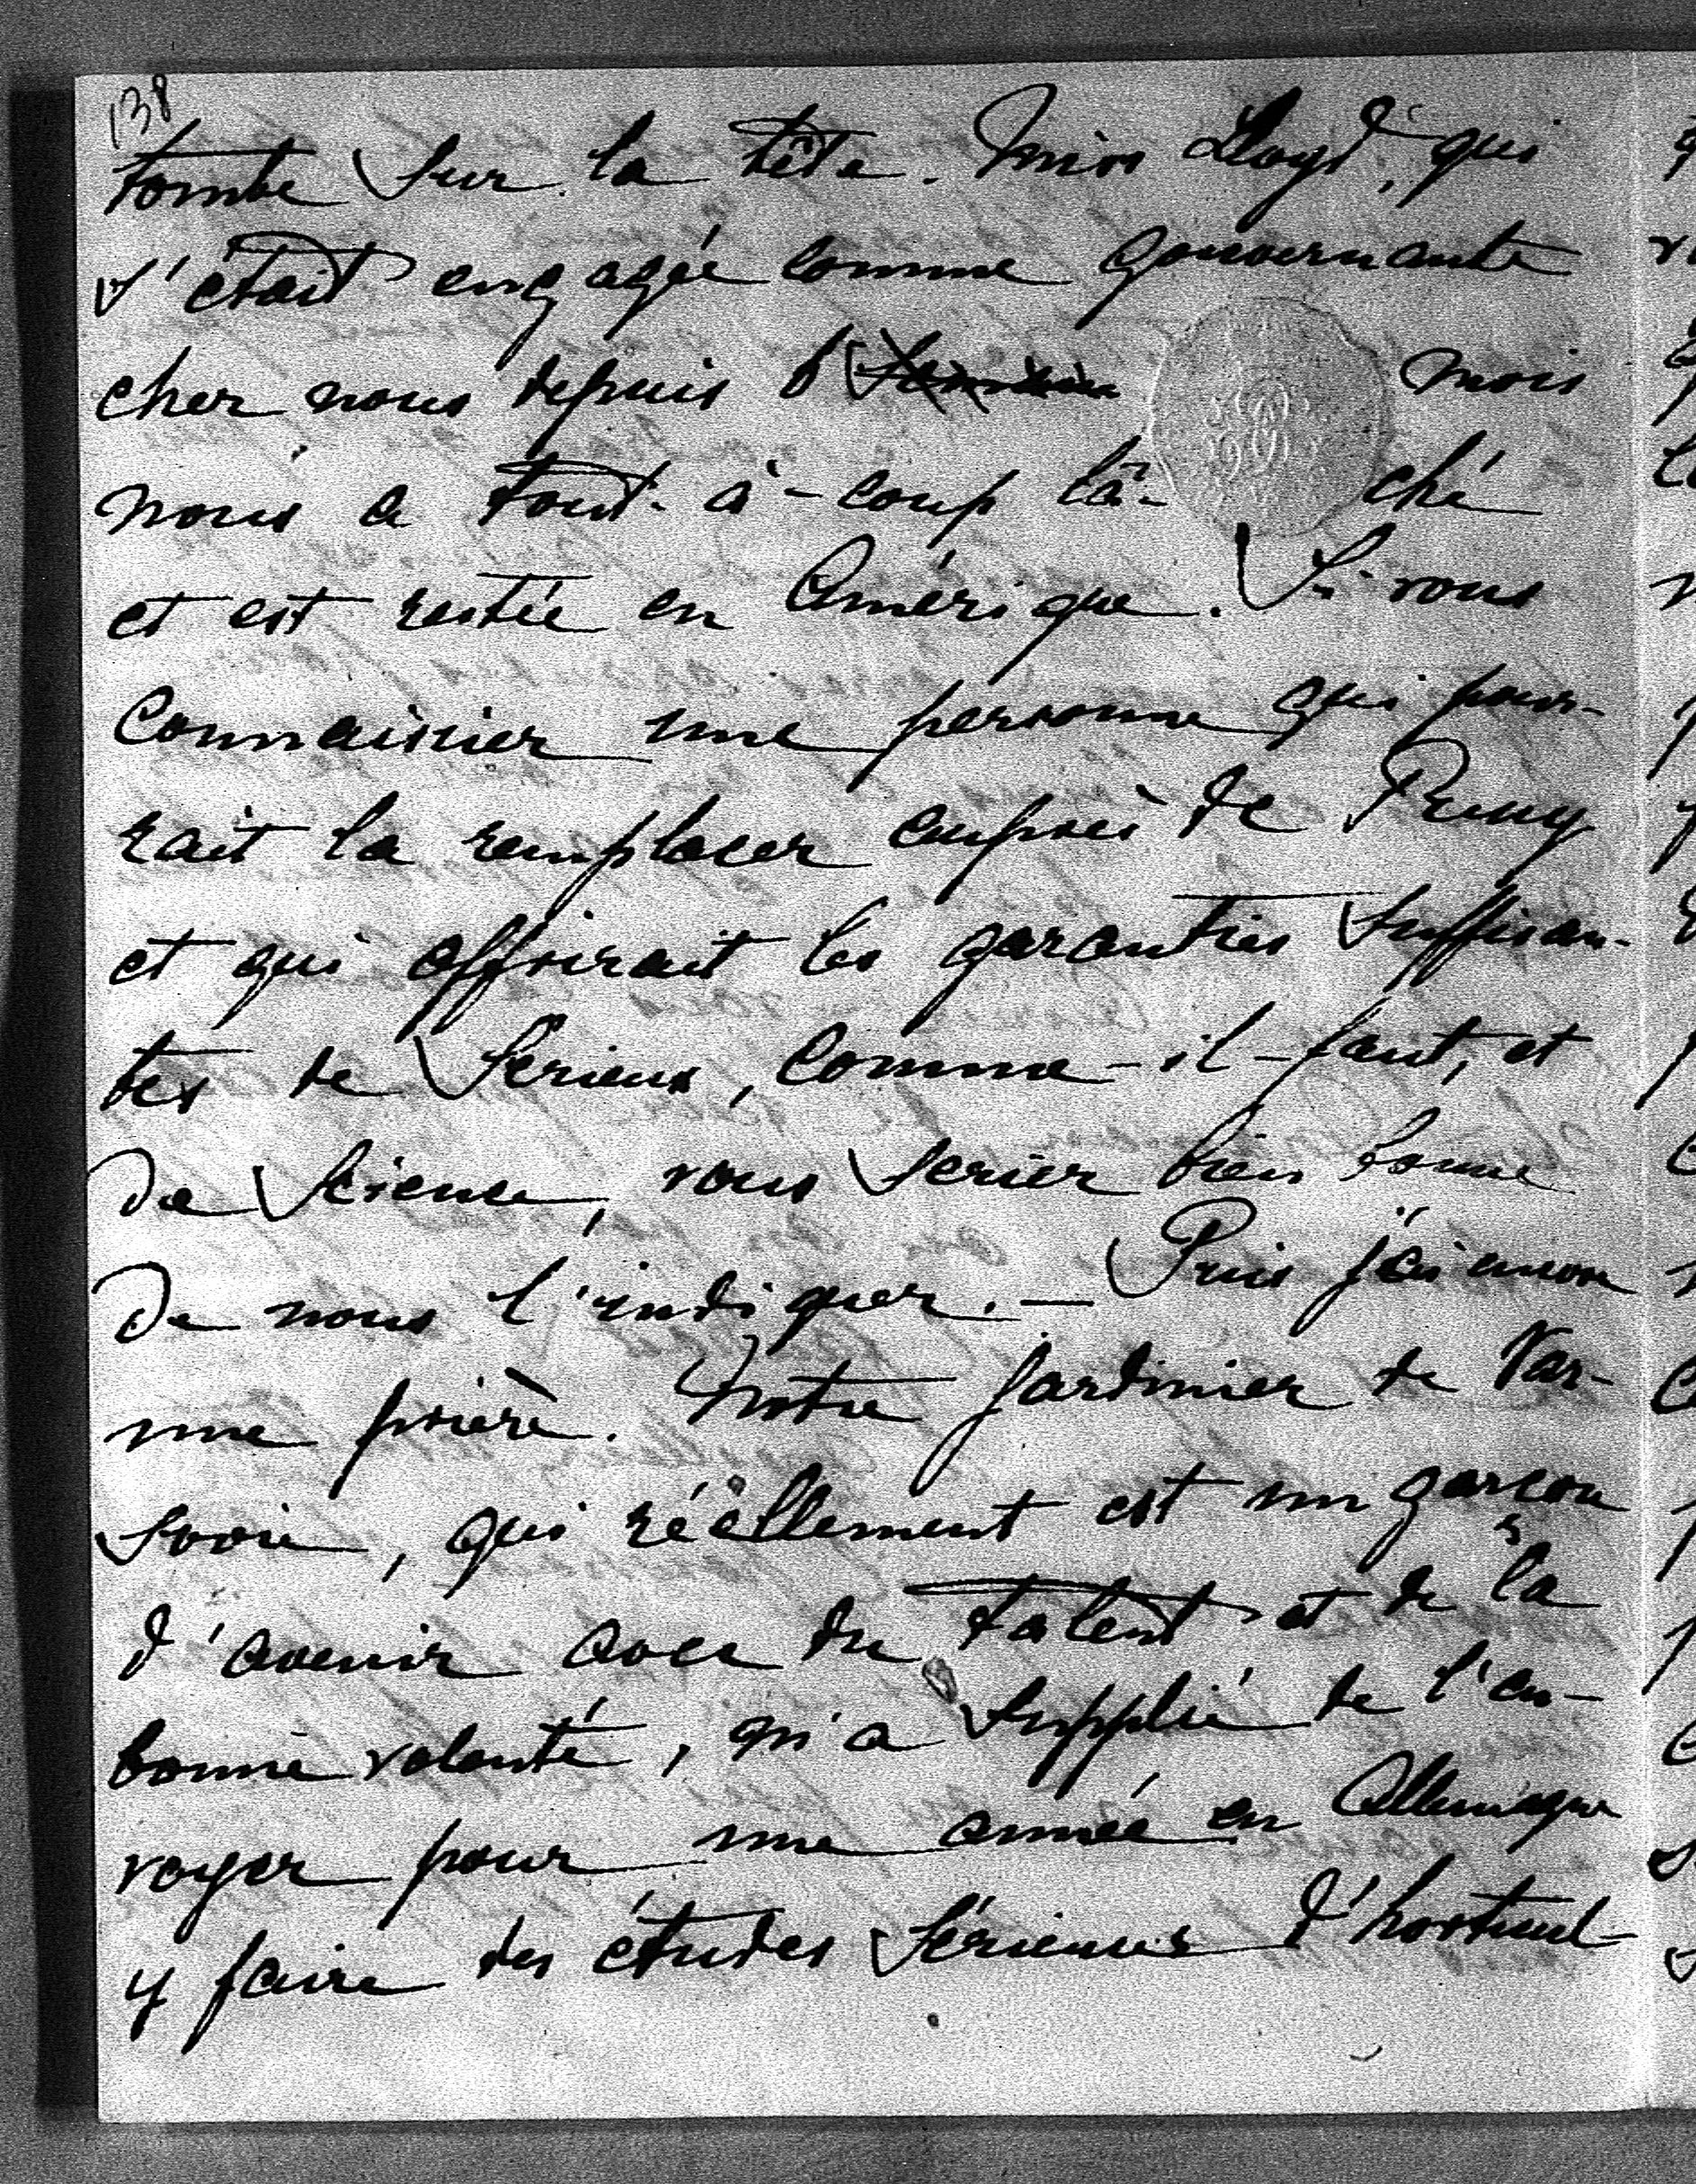 138
tombe sur la tête. Miss Loyd, qui
s'était engagée comme gouvernante
chez nous depuis 6 mois
nous a tout-à-coup lâ- ché
et est restée en Amérique. Si vous
connaissiez une personne qui pour-
rait la remplacer auprès de Remy
et qui offrirait les garanties suffisan-
tes de serieux, comme-il-faut, et
de science, vous seriez bien bonne
de nous l'indiquer. — Puis j'ai encore
une prière. Notre jardinier de Var-
sovie, qui réellement est un garçon
d'avenir avec du talent et de la
bonne volonté, m'a supplié de l'en-
voyer pour une année en Allemagne
y faire des études sérieuses d'horticul-